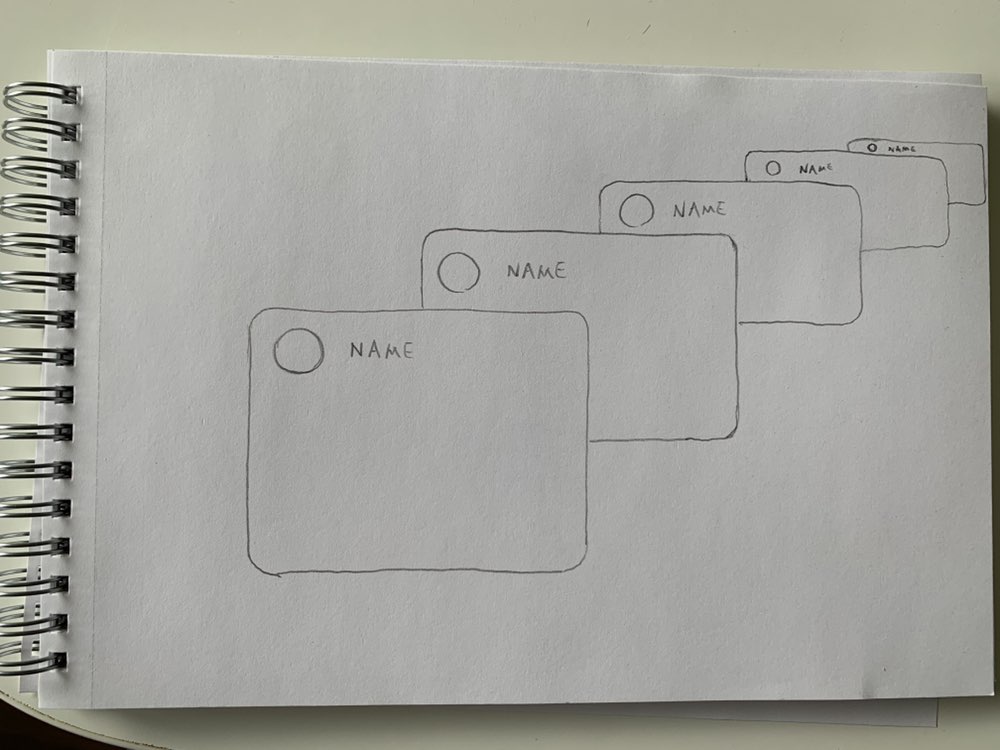 NAME
NAME
NAME
NAME
NAME